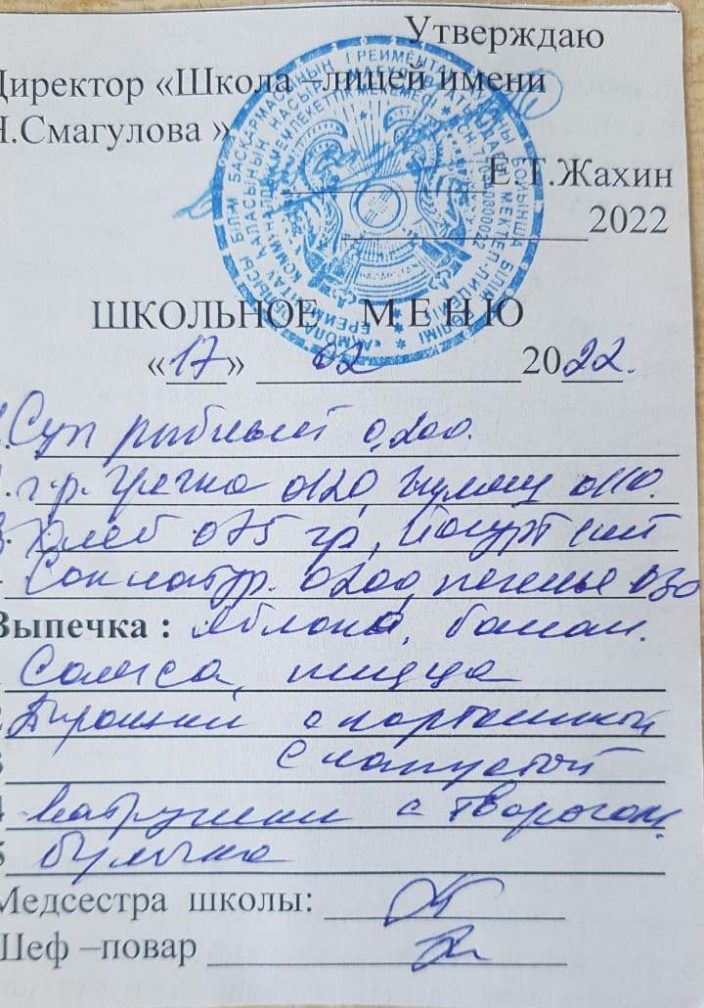 Утверждаю
Директор «Школа - лицей имени
Н.Смагулова »
Е.Т.Жахин
2022
ШКОЛЬНОЕ МЕНЮ
«17» 02 2022.
Суп рыбный 0,200.
г.р. гречка 0120, гуляш 0110.
3. Хлеб 075 гр, йогурт 1шт
Сок натур. 0200, печенье 030
Выпечка : яблоко, банан.
Самса, пицца
2 Пирожки с картошкой
3 с капустой
4 Ватрушки с творогом.
5 булочка
Медсестра школы:
Шеф –повар